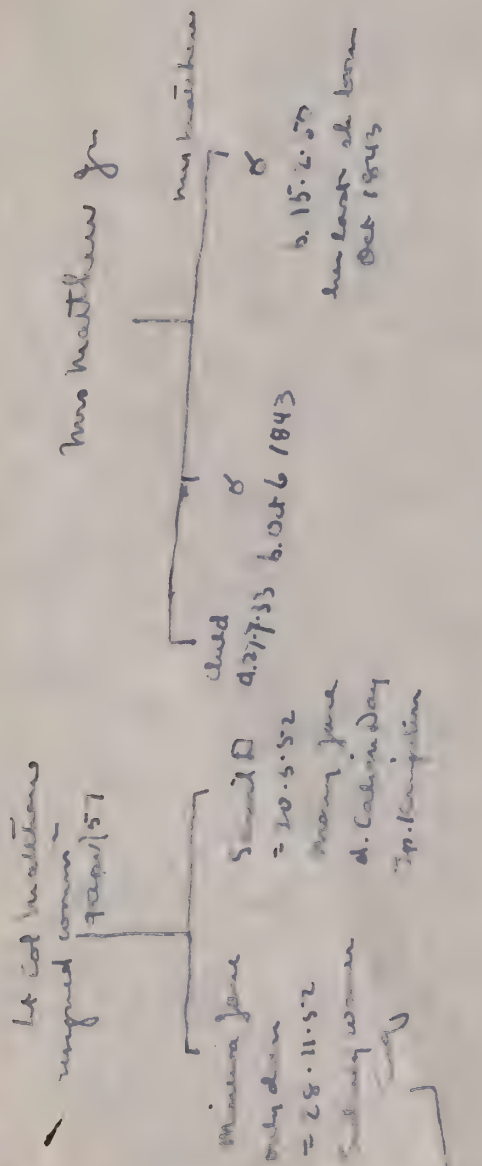 Lt Col Matthews
resigned comm -
9 Apr/57
Minerva Jane
only dau
= 28.11.52
Warner
Esq
Saml D
= 20.5.52
Mary Jane
d. Calvin Day
Tp. Kingston
Mrs Matthew Jr
Child
d. 27.7.33
b. Oct 6 1843
Mrs Matthew
b. 15.2.
her last ch born
Oct 1843